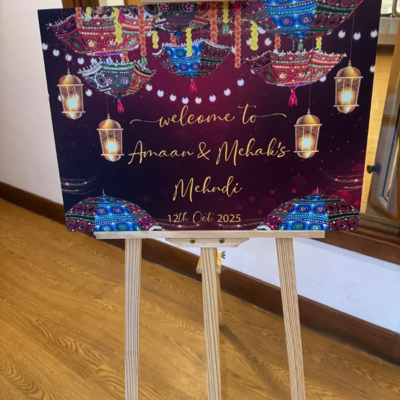 welcome to
Amaan & Mehak's
Mehndi
12th Oct 2025